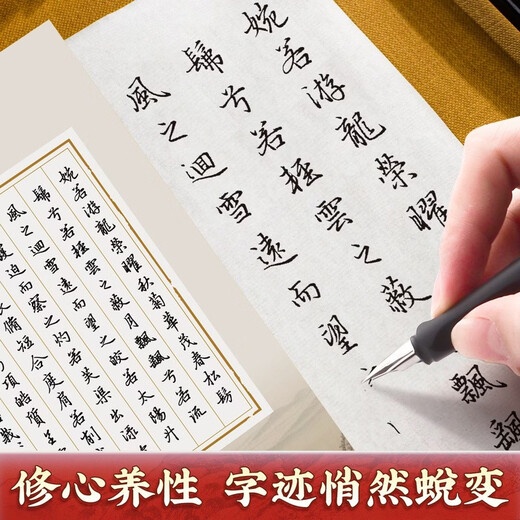 婉若游龍榮曜
髴兮若輕雲之蔽
飄飄
風之迴雪遠而望
婉若游龍榮曜秋菊華茂春松髣
髴兮若輕雲之蔽月飄飄兮若流
風之迴雪遠而望之皎若太陽升
迫而察之灼若芙蕖出渌
脩短合度肩若削
項皓質呈
修心养性 字迹悄然蜕变